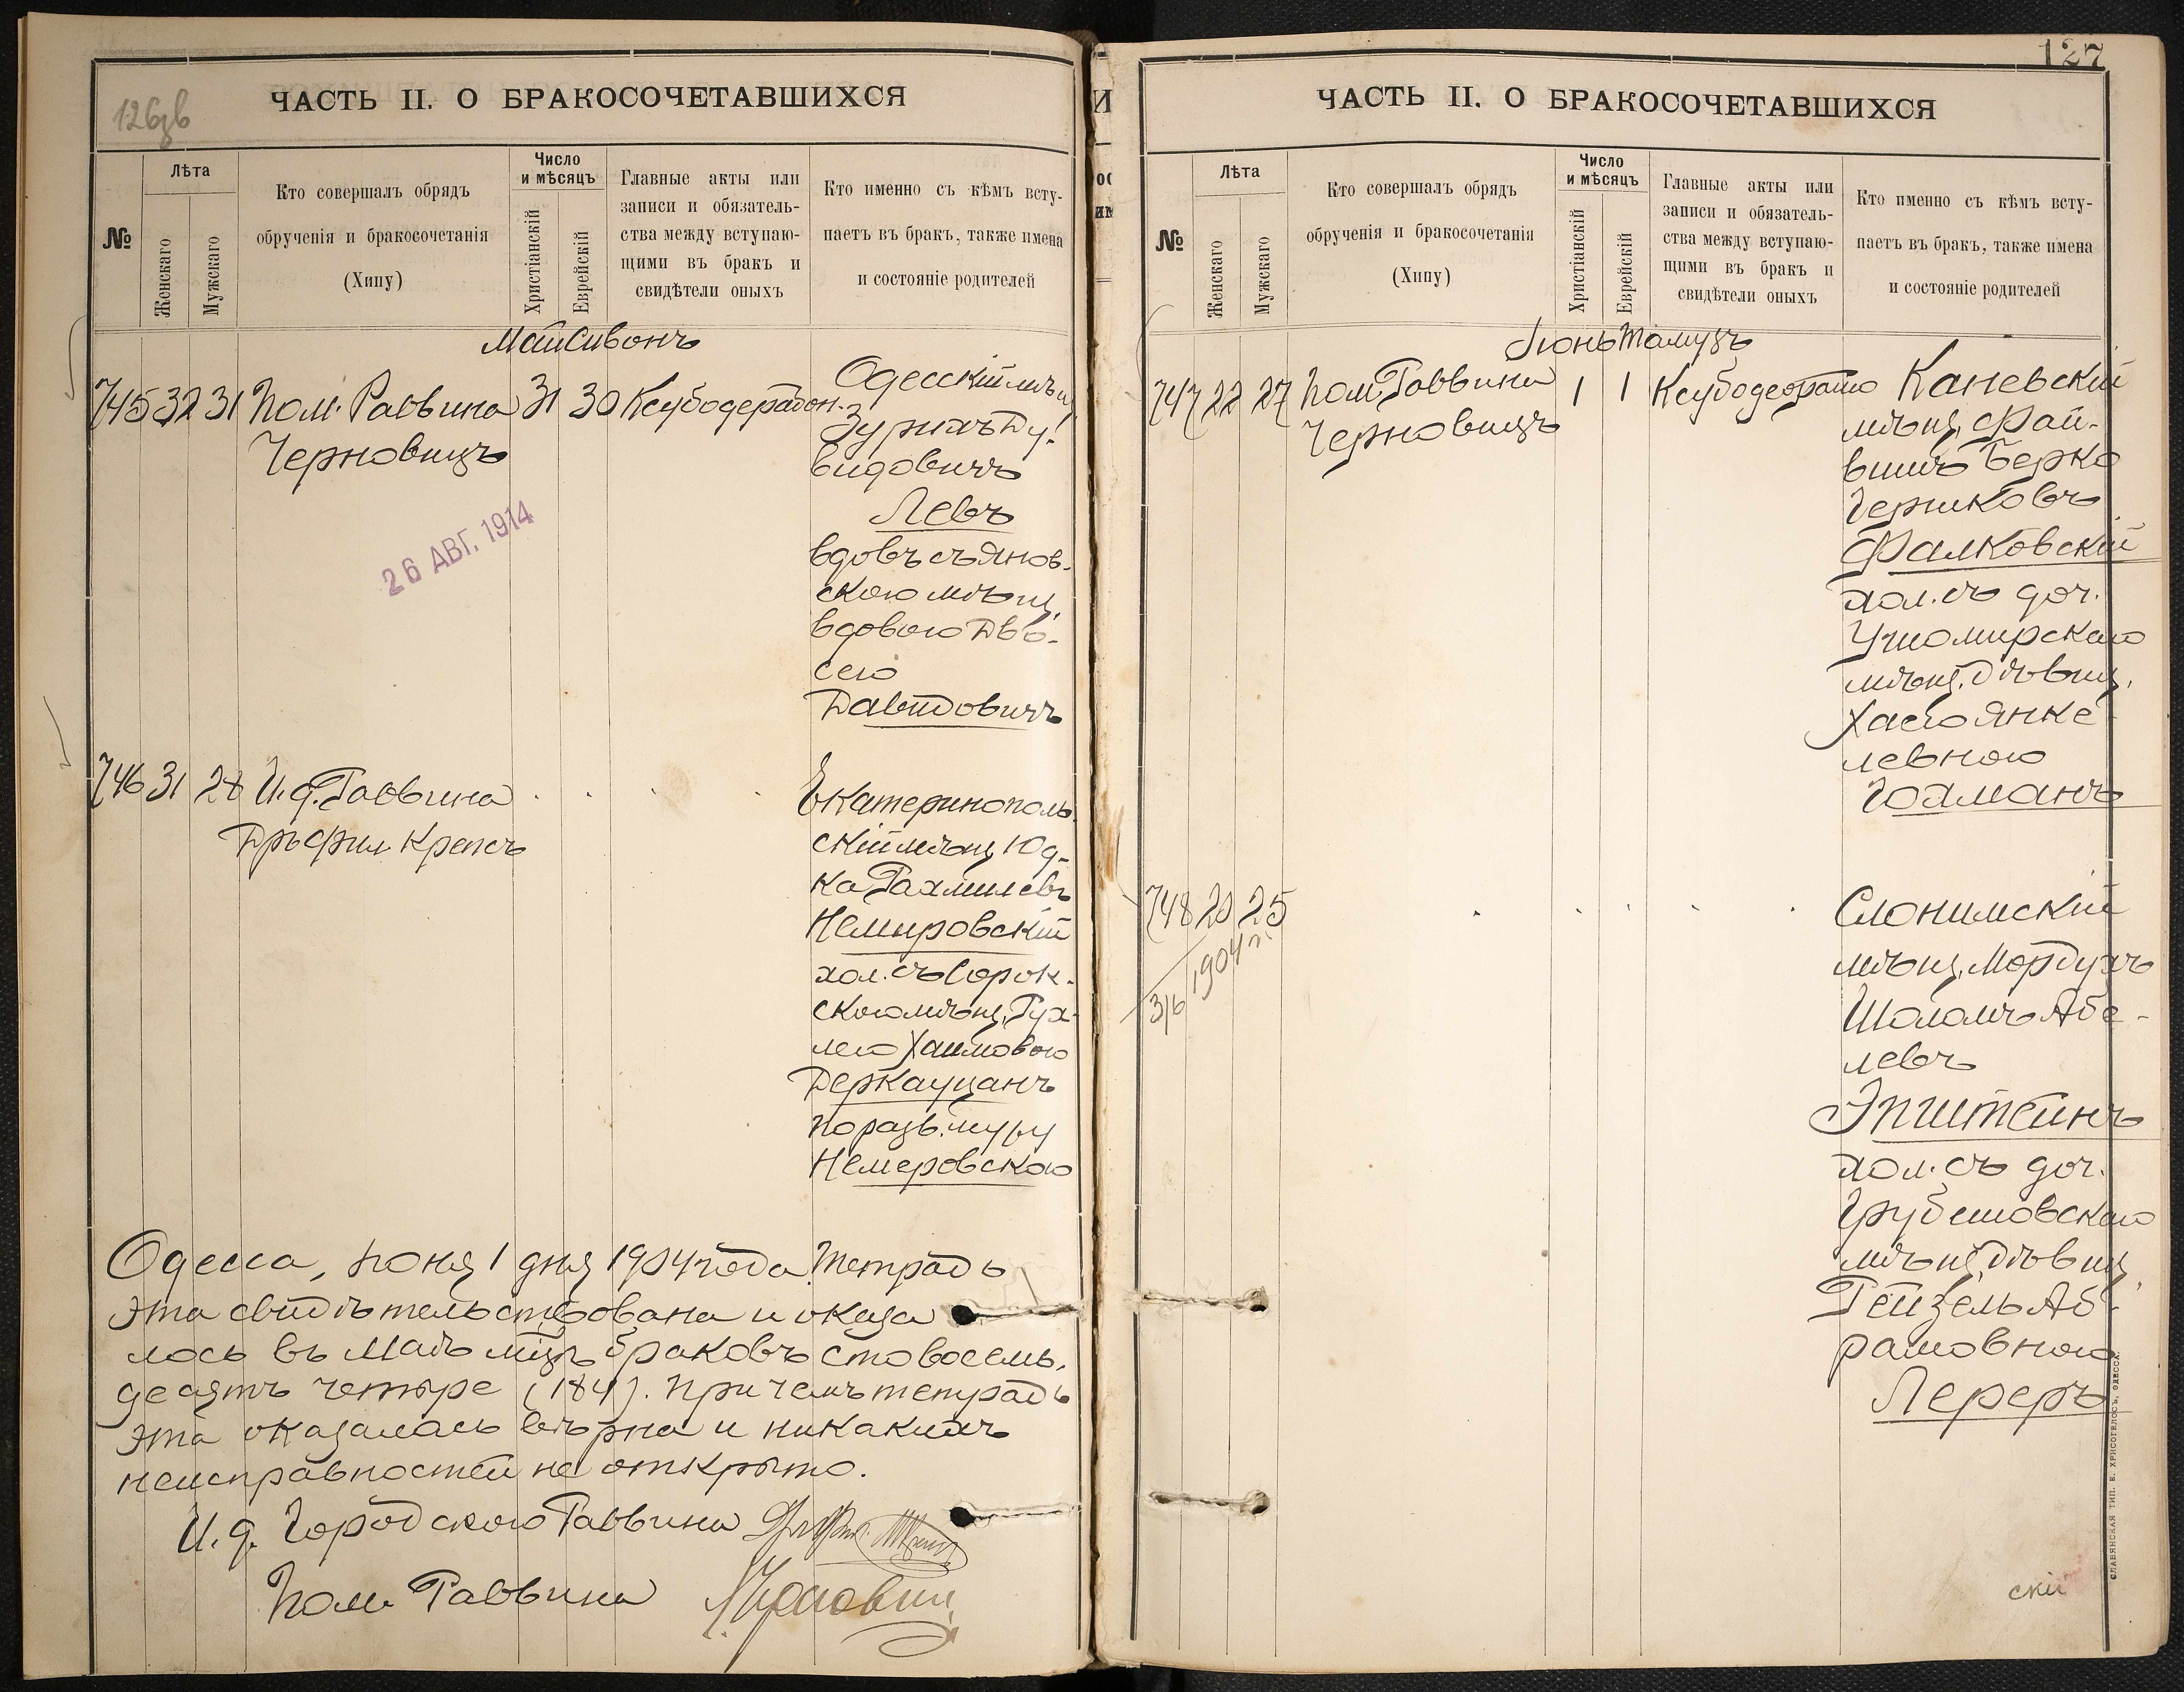 126об
ЧАСТЬ II. О БРАКОСОЧЕТАВШИХСЯ
№
Лѣта
Женскаго
Мужскаго
Кто совершалъ обрядъ
обрученія и бракосочетанія
(Хипу)
Число
и мѣсяцъ
Христіанскій
Еврейскій
Главные акты или
записи и обязатель-
ства между вступаю-
щими въ бракъ и
свидѣтели оныхъ
Кто именно съ кѣмъ всту-
паетъ въ бракъ, также имена
и состояніе родителей
Май Сивонъ
745 32 31 Пом. Раввина 31 30 Ксубодерабон.
Черновицъ
Одесскій мѣщ.
видовичъ
Левъ
вдовъ съ Янов-
скою мѣщ.
вдовою Дво-
сею
Давидовичъ
26 АВГ. 1914
746 31 28 И. д. Раввина
Дръ фил. Крепсъ
Екатеринополь-
скій мѣщ. Юд-
ка Рахмилевъ
Немировскій
хол. съ Сорок-
скою мѣщ. Рух-
лею Хаимовою
Деркауцанъ
по разв. мужу
Немеровскою
Одесса, Іюня 1 дня 1904 года. Тетрадь
эта свидѣтельствована и оказа
лось въ Маѣ мцѣ браковъ сто восемь-
десятъ четыре (184). При чемъ тетрадь
эта оказалась вѣрна и никакихъ
неисправностей не открыто.
И. д. Городского Раввина
Пом. Раввина
127
ЧАСТЬ II. О БРАКОСОЧЕТАВШИХСЯ
№
Лѣта
Женскаго
Мужскаго
Кто совершалъ обрядъ
обрученія и бракосочетанія
(Хипу)
Число
и мѣсяцъ
Христіанскій
Еврейскій
Главные акты или
записи и обязатель-
ства между вступаю-
щими въ бракъ и
свидѣтели оныхъ
Кто именно съ кѣмъ всту-
паетъ въ бракъ, также имена
и состояніе родителей
Іюнь Тамузъ
747 22 27 Пом. Раввина 1 1
Черновицъ
Каневскій
мѣщ. Фай-
вишъ Берко
Гершковъ
Фалковскій
хол. съ доч.
Ушомирскаго
мѣщ. дѣвиц.
Хаею Янке-
левною
Гохманъ
748 20 25
316 1904 г.
Слонимскій
мѣщ. Мордухъ
Шоломъ Абе-
левъ
Эпштейнъ
хол. съ доч.
Грубешовскаго
мѣщ. дѣвиц.
Рейзель Аб-
рамовною
Лереръ
скій
СЛАВЯНСКАЯ ТИП. Е. ХРИСОГЕЛОСЪ, ОДЕССА.